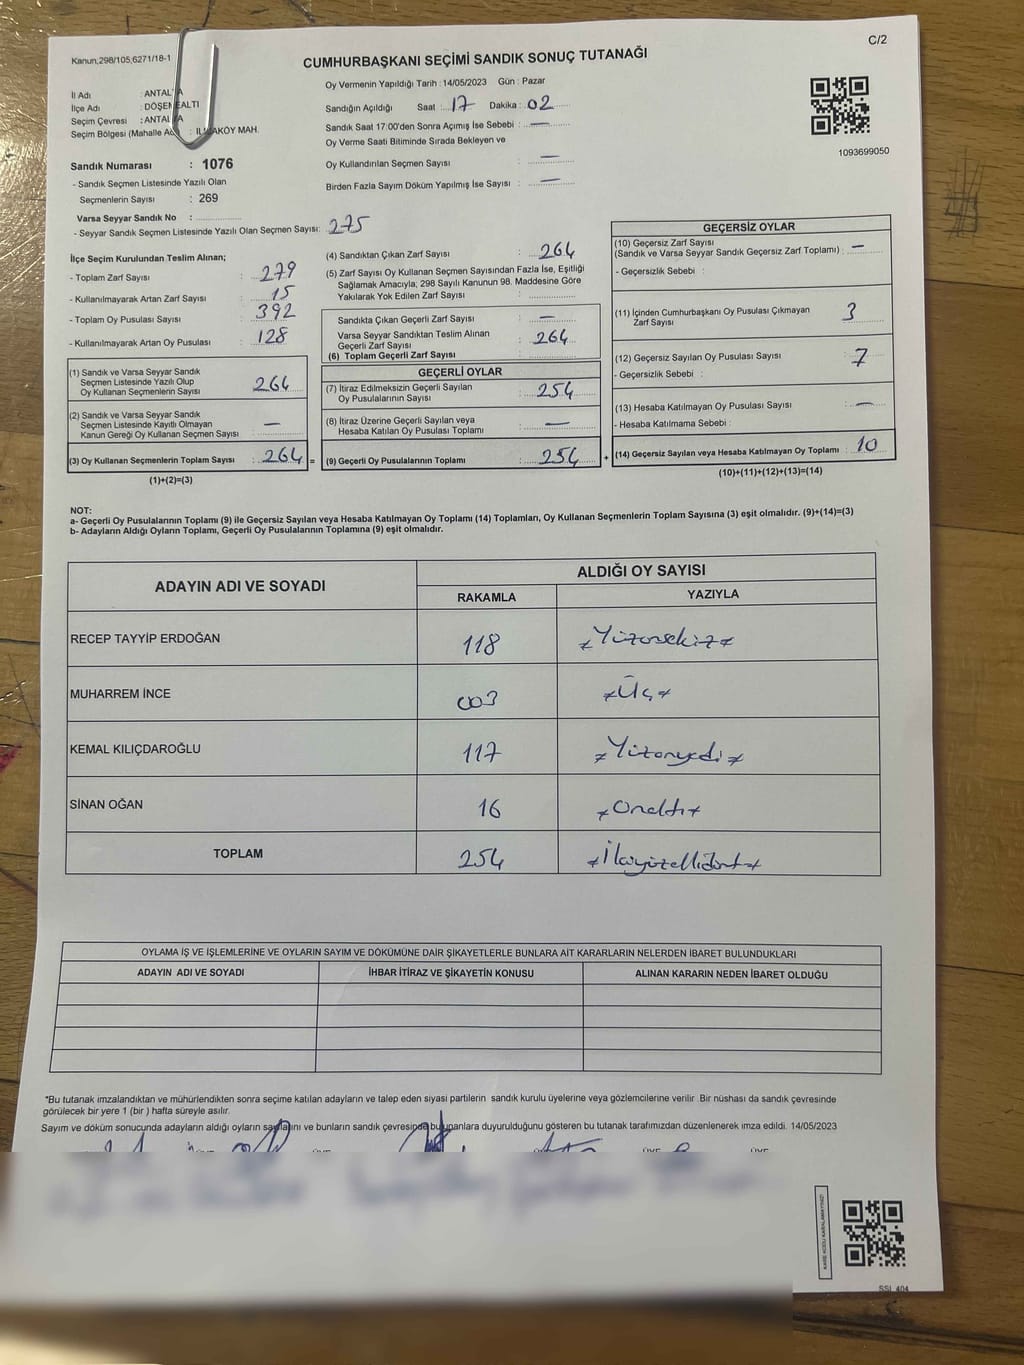 Kanun,298/105,6271/18-1
C/2
CUMHURBAŞKANI SEÇİMİ SANDIK SONUÇ TUTANAĞI
İl Adı : ANTALYA
İlçe Adı : DÖŞEMEALTI
Seçim Çevresi : ANTALYA
Seçim Bölgesi (Mahalle : KÖY MAH.
Sandık Numarası : 1076
- Sandık Seçmen Listesinde Yazılı Olan
Seçmenlerin Sayısı : 269
Varsa Seyyar Sandık No :
- Seyyar Sandık Seçmen Listesinde Yazılı Olan Seçmen Sayısı: 275
Oy Vermenin Yapıldığı Tarih : 14/05/2023 Gün : Pazar
Sandığın Açıldığı Saat : 17 Dakika : 02
Sandık Saat 17:00'den Sonra Açımış İse Sebebi : —
Oy Verme Saati Bitiminde Sırada Bekleyen ve
Oy Kullandırılan Seçmen Sayısı : —
Birden Fazla Sayım Döküm Yapılmış İse Sayısı : —
1093699050
İlçe Seçim Kurulundan Teslim Alınan;
- Toplam Zarf Sayısı : 279
- Kullanılmayarak Artan Zarf Sayısı : 15
- Toplam Oy Pusulası Sayısı : 392
- Kullanılmayarak Artan Oy Pusulası : 128
(1) Sandık ve Varsa Seyyar Sandık
Seçmen Listesinde Yazılı Olup
Oy Kullanan Seçmenlerin Sayısı : 264
(2) Sandık ve Varsa Seyyar Sandık
Seçmen Listesinde Kayıtlı Olmayan
Kanun Gereği Oy Kullanan Seçmen Sayısı : —
(3) Oy Kullanan Seçmenlerin Toplam Sayısı : 264 =
(1)+(2)=(3)
(4) Sandıktan Çıkan Zarf Sayısı : 264
(5) Zarf Sayısı Oy Kullanan Seçmen Sayısından Fazla İse, Eşitliği
Sağlamak Amacıyla; 298 Sayılı Kanunun 98. Maddesine Göre
Yakılarak Yok Edilen Zarf Sayısı :
Sandıkta Çıkan Geçerli Zarf Sayısı : —
Varsa Seyyar Sandıktan Teslim Alınan
Geçerli Zarf Sayısı : 264
(6) Toplam Geçerli Zarf Sayısı :
GEÇERLİ OYLAR
(7) İtiraz Edilmeksizin Geçerli Sayılan
Oy Pusulalarının Sayısı : 254
(8) İtiraz Üzerine Geçerli Sayılan veya
Hesaba Katılan Oy Pusulası Toplamı : —
(9) Geçerli Oy Pusulalarının Toplamı : 254 +
GEÇERSİZ OYLAR
(10) Geçersiz Zarf Sayısı
(Sandık ve Varsa Seyyar Sandık Geçersiz Zarf Toplamı) : —
- Geçersizlik Sebebi :
(11) İçinden Cumhurbaşkanı Oy Pusulası Çıkmayan
Zarf Sayısı : 3
(12) Geçersiz Sayılan Oy Pusulası Sayısı : 7
- Geçersizlik Sebebi :
(13) Hesaba Katılmayan Oy Pusulası Sayısı : —
- Hesaba Katılmama Sebebi :
(14) Geçersiz Sayılan veya Hesaba Katılmayan Oy Toplamı : 10
(10)+(11)+(12)+(13)=(14)
NOT:
a- Geçerli Oy Pusulalarının Toplamı (9) ile Geçersiz Sayılan veya Hesaba Katılmayan Oy Toplamı (14) Toplamları, Oy Kullanan Seçmenlerin Toplam Sayısına (3) eşit olmalıdır. (9)+(14)=(3)
b- Adayların Aldığı Oyların Toplamı, Geçerli Oy Pusulalarının Toplamına (9) eşit olmalıdır.
ADAYIN ADI VE SOYADI
ALDIĞI OY SAYISI
RAKAMLA YAZIYLA
RECEP TAYYİP ERDOĞAN 118 Yüzonsekiz
MUHARREM İNCE 003 Üç
KEMAL KILIÇDAROĞLU 117 Yüzonyedi
SİNAN OĞAN 16 Onaltı
TOPLAM 254 İkiyüzellidört
OYLAMA İŞ VE İŞLEMLERİNE VE OYLARIN SAYIM VE DÖKÜMÜNE DAİR ŞİKAYETLERLE BUNLARA AİT KARARLARIN NELERDEN İBARET BULUNDUKLARI
ADAYIN ADI VE SOYADI İHBAR İTİRAZ VE ŞİKAYETİN KONUSU ALINAN KARARIN NEDEN İBARET OLDUĞU
*Bu tutanak imzalandıktan ve mühürlendikten sonra seçime katılan adayların ve talep eden siyasi partilerin sandık kurulu üyelerine veya gözlemcilerine verilir .Bir nüshası da sandık çevresinde
görülecek bir yere 1 (bir ) hafta süreyle asılır.
Sayım ve döküm sonucunda adayların aldığı oyların sayılarını ve bunların sandık çevresinde bulunanlara duyurulduğunu gösteren bu tutanak tarafımızdan düzenlenerek imza edildi. 14/05/2023
SSI_404